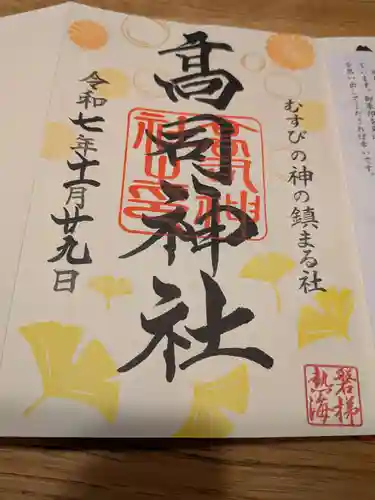 むすびの神の鎮まる社
高司神社
令和七年十一月廿九日
磐梯
熱海